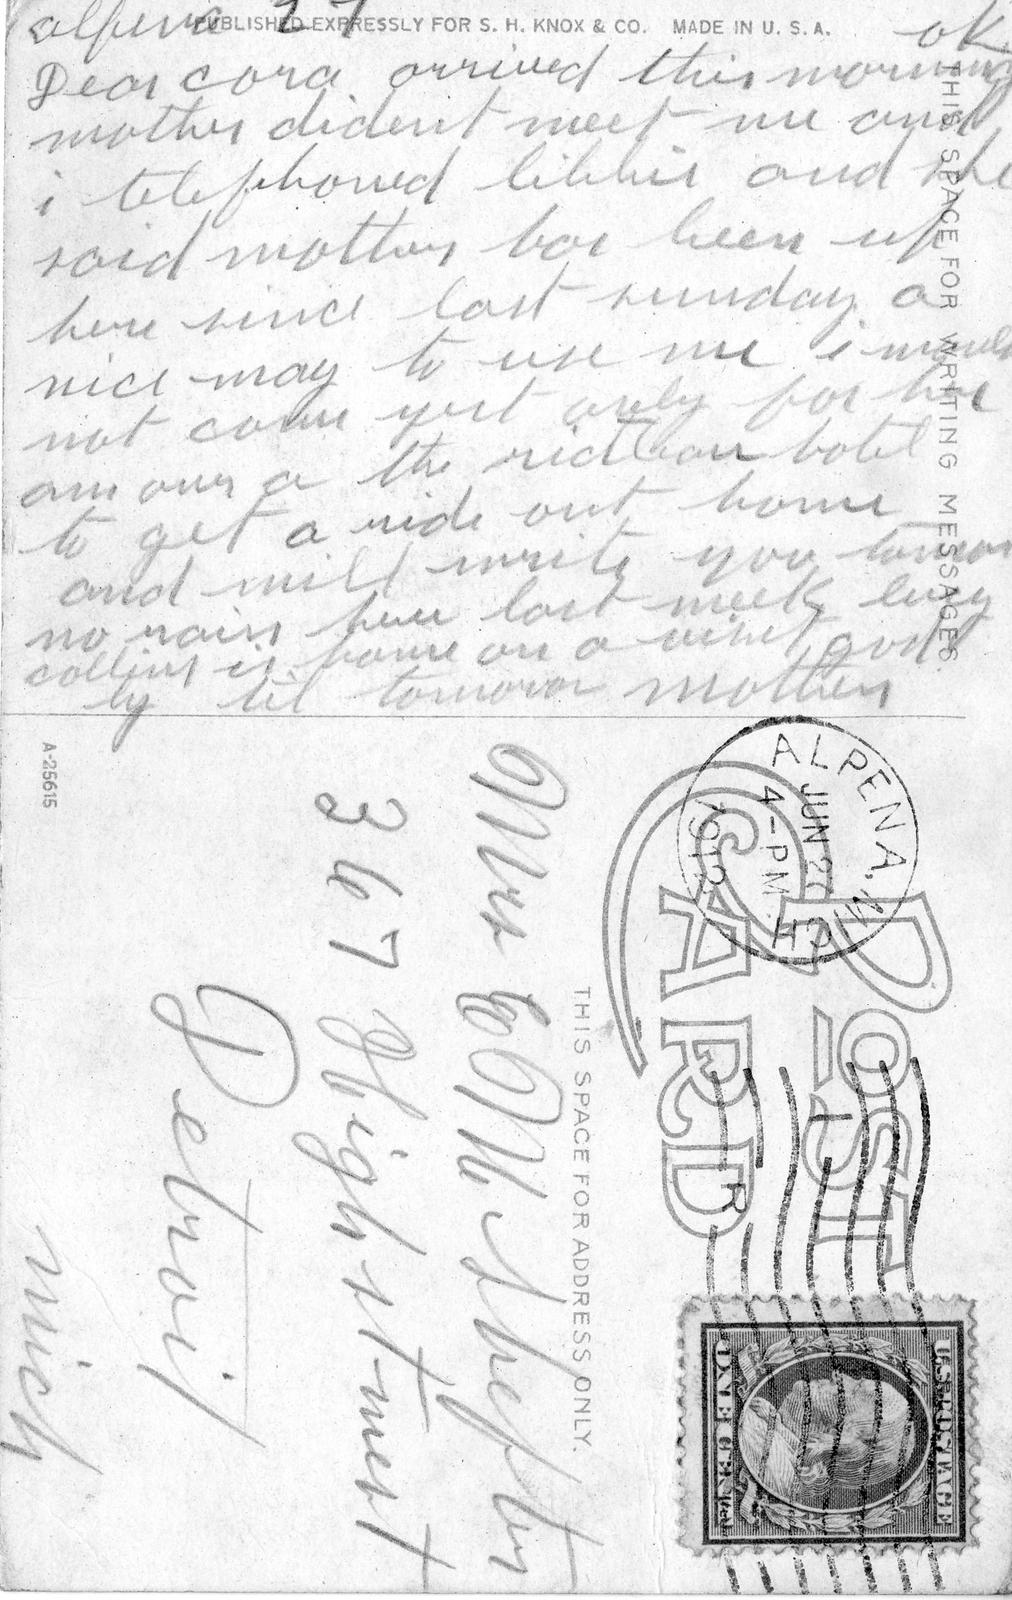 alpena 27 ok
PUBLISHED EXPRESSLY FOR S. H. KNOX & CO. MADE IN U. S. A.
Dear cora arrived this morning
mother dident meet me and
i telephoned libbie and she
said mother has been up
here since last sunday a
nice way to use me i would
not come yet only for her
am over a the hotel
to get a ride out home
and will write you tomorow
no rain here last week
collins is home on a viset good
by til tomorow mother
THIS SPACE FOR WRITING MESSAGES.
A-25615
POST CARD
ALPENA, MICH
JUN 27
4-PM
1912
R
U.S. POSTAGE
ONE CENT
THIS SPACE FOR ADDRESS ONLY.
Mrs
367 High street
Detroit
mich